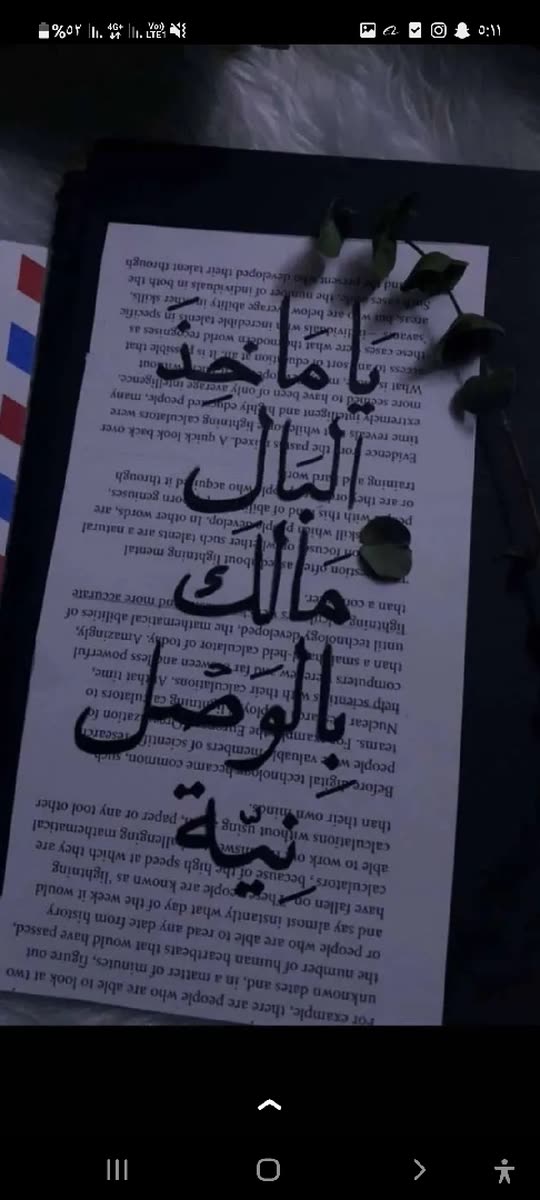 %٥٢ 4G+ Vo)) LTE1 ٥:١١
يَا مَاخِذَ
البَال
مَالَك
بِالوَصْل
نِيّة
For example, there are people who are able to look at two
unknown dates and, in a matter of minutes, figure out
the number of human heartbeats that would have passed,
or people who are able to read any date from history
and say almost instantly what day of the week it would
have fallen on. These people are known as 'lightning
calculators', because of the high speed at which they are
able to work challenging mathematical
calculations without using paper or any tool other
than their own minds.
Before digital technology became common, such
people were valuable members of scientific research
teams. For example, the Organization for
Nuclear lightning calculators to
help scientists with their calculations. At that time,
computers were few and far between and less powerful
than a small hand-held calculator of today. Amazingly,
until technology developed, the mathematical abilities of
lightning and more accurate
than a
question often asked about lightning mental
focuses on whether such talents are a natural
skill which people develop. In other words, are
people with this kind of born geniuses,
or are they who acquired it through
training and hard work?
Evidence from the past is mixed. A quick look back over
time reveals that while some lightning calculators were
extremely intelligent and highly educated people, many
more seemed to have been of only average intelligence.
What is without
access to any sort of education at all. It is possible that
these cases were what the modern world recognises as
– individuals with incredible talents in specific
areas, but who are below average ability in other skills.
the number of individuals in both the
and the present who developed their talent through